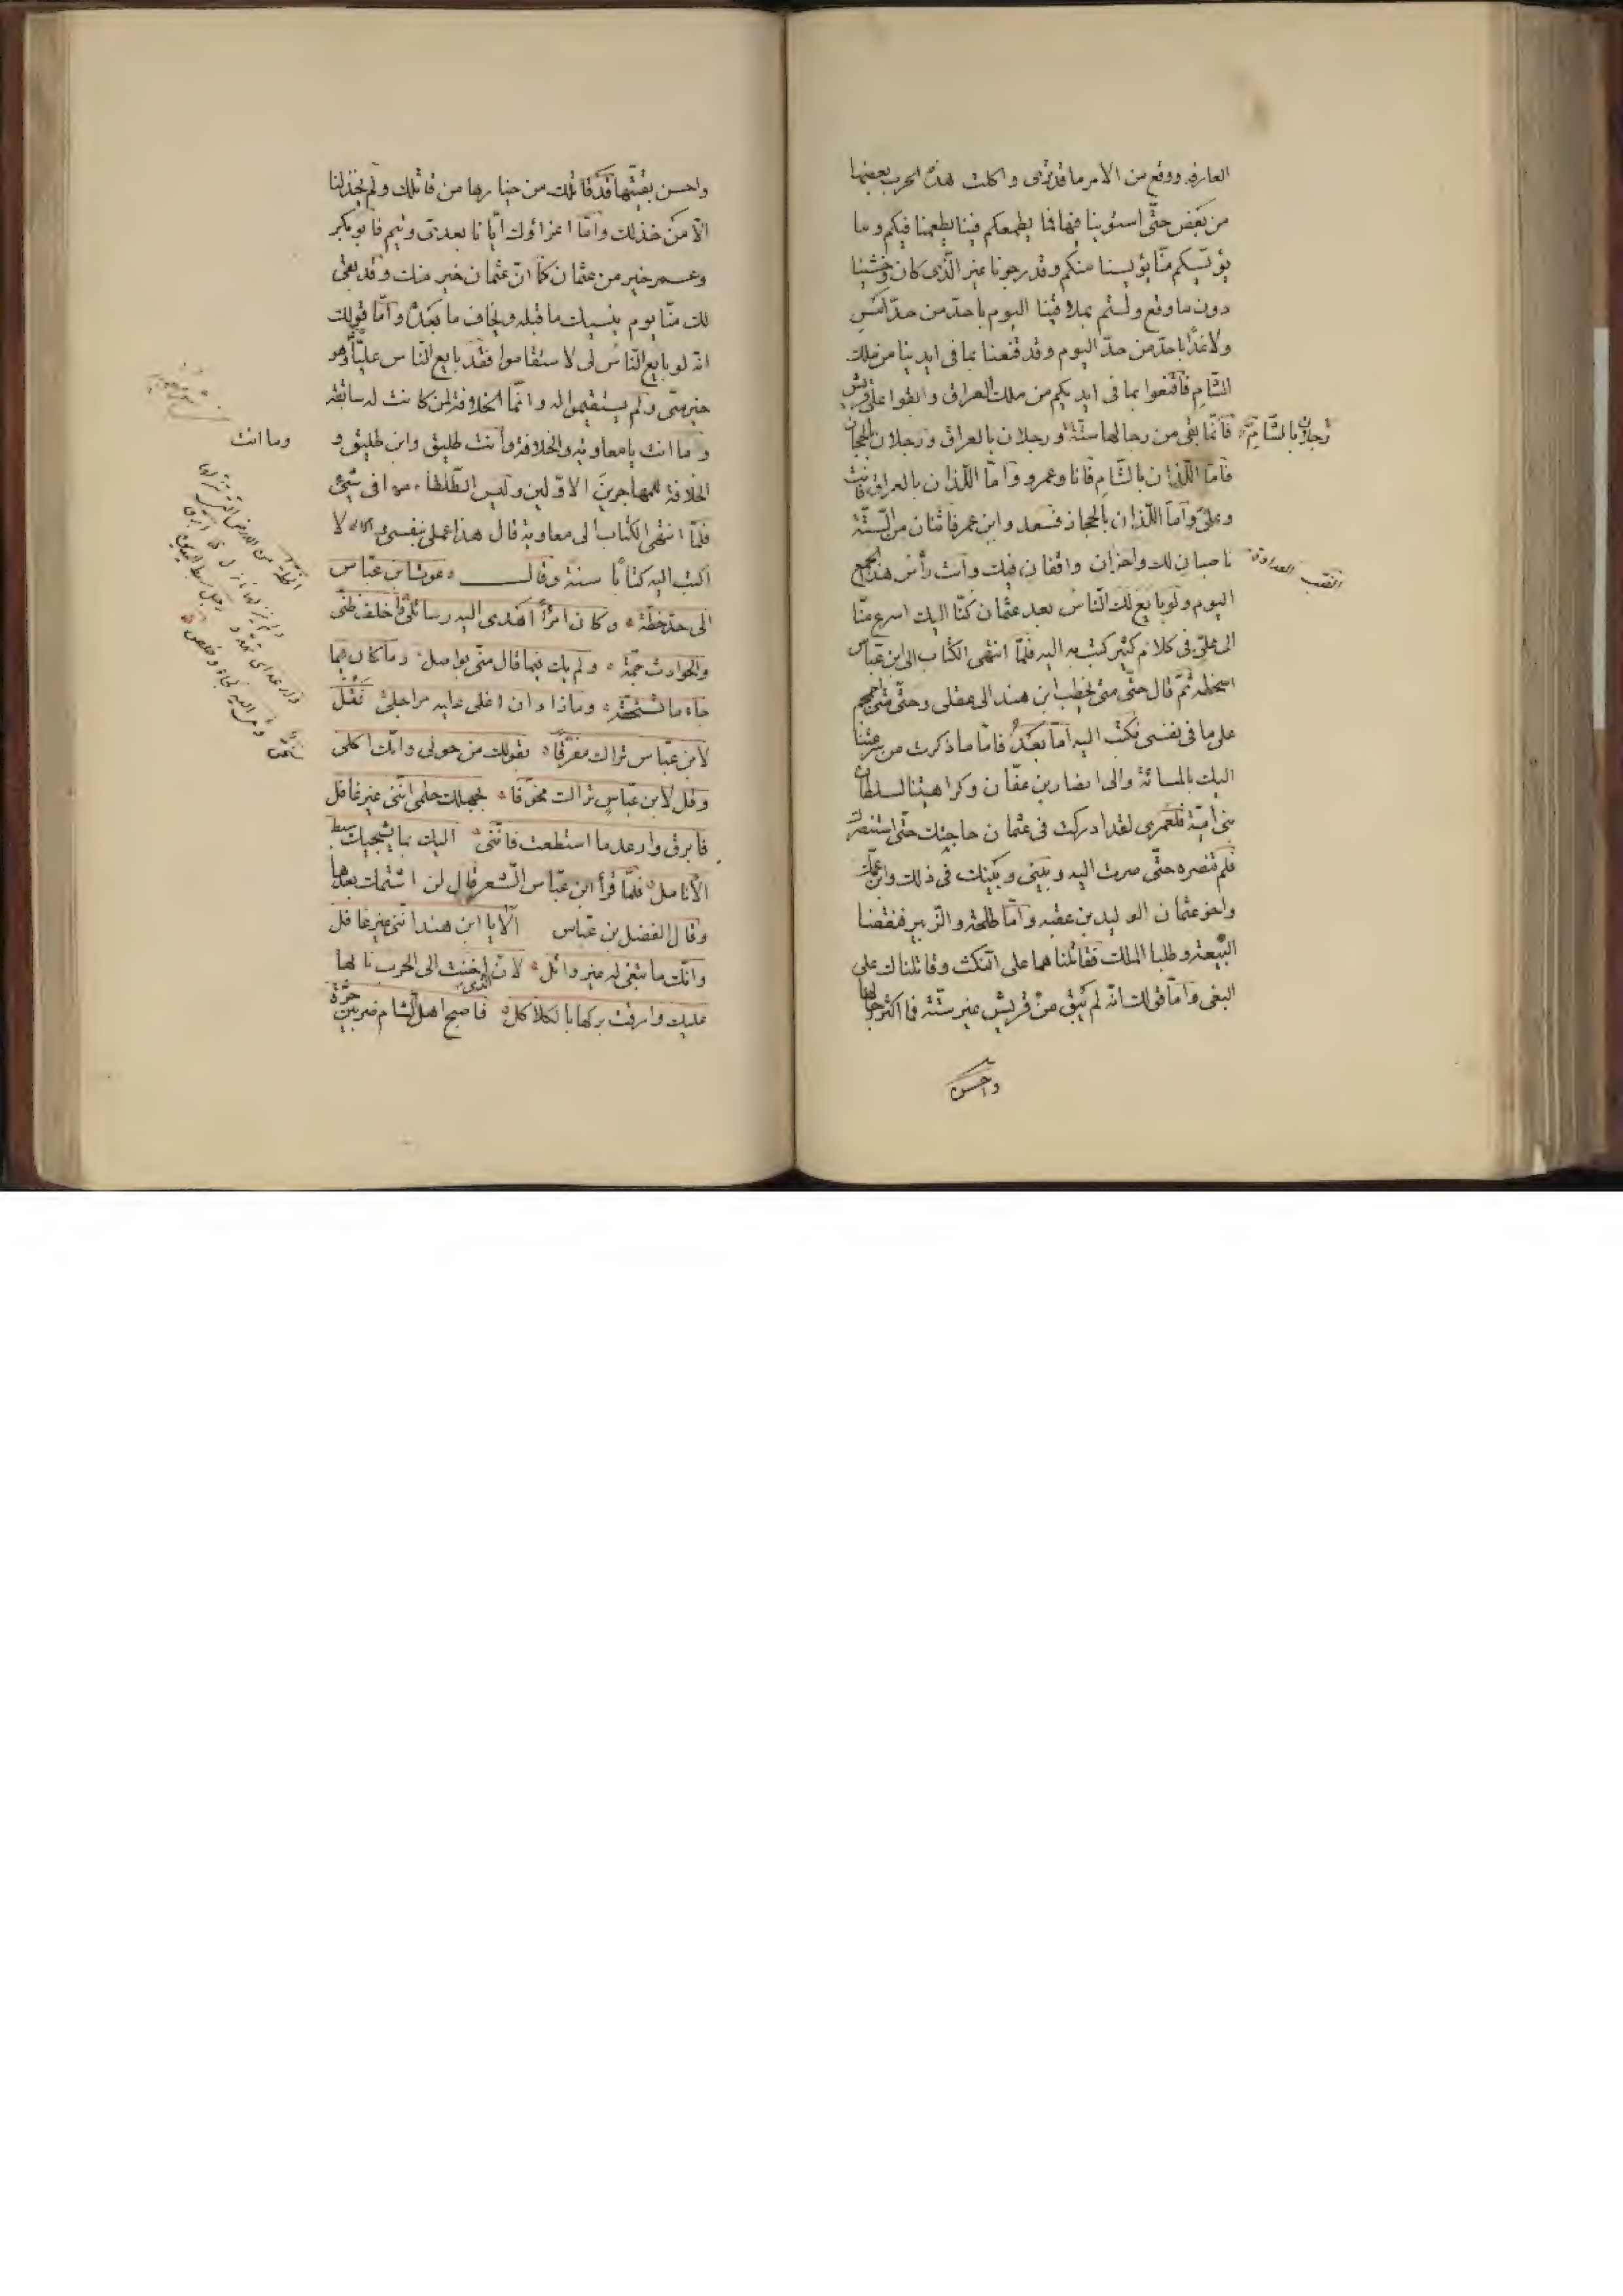 العارفه ووقع من الامر ما قد ترى واكلت هذه الحرب بعضها
من بعض حتى استوينا فيها فما يطمعكم فينا يطمعنا فيكم وما
يؤيسكم منا يؤيسنا منكم وقد رجونا غير الذى كان وخشينا
دون ما وقع ولستم بملاقينا اليوم باحد من حد امس
ولا غدا باحد من حد اليوم وقد قنعنا بما فى ايدينا من ملك
الشام فاقنعوا بما فى ايديكم من ملك العراق وابقوا على قريش
فانما بقى من رجالها ستة ورجلان بالعراق ورجلان بالحجاز
رجلان بالشام
فاما اللذان بالشام فانا وعمرو واما اللذان بالعراق فانت
وعلى واما اللذان بالحجاز فسعد وابن عمر فاثنان من الستة
ناصبان لك واخران واقفان فيك وانت رأس هذا الجمع
النصب العداوة
اليوم ولو بايع لك الناس بعد عثمان كنا اليك اسرع منا
الى على فى كلام كثير كتب به اليه فلما انتهى الكتاب الى ابن عباس
اسخطه ثم قال حتى متى يخطب ابن هند الى عقلى وحتى متى اجمجم
على ما فى نفسى فكتب اليه اما بعد فاما ما ذكرت من سرعتنا
اليك بالمسائة والى انصار بن عفان وكراهيتنا لسلطان
بنى امية فلعمرى لقد ادركت فى عثمان حاجتك حتى استنصرك
فلم تنصره حتى صرت اليه وبينى وبينك فى ذلك وابن عمك
واخو عثمان الوليد بن عقبه واما طلحة والزبير فنقضنا
البيعة وطلبا الملك فقاتلناهما على النكث وقاتلناك على
البغى واما قولك انه لم يبق من قريش غير ستة فما اكثر رجالها
واحسن
واحسن بقيتها فقد قاتلك من خيارها من قاتلك ولم يخذلنا
الا من خذلك واما اغراؤك ايانا بعدى وتيم فابو بكر
وعمر خير من عثمان كما ان عثمان خير منك وقد بقى
لك منا يوم ينسيك ما قبله ويخاف ما بعده واما قولك
انه لو بايع الناس لى لاستقاموا فقد بايع الناس عليا وهو
خير منى ولم يستقيموا له وانما الخلافة لمن كانت له سابقة
وما انت يا معاوية والخلافة وانت طليق وابن طليق و
وما انت
الخلافة للمهاجرين الاولين وليس الطلقاء منها فى شىء
فلما انتهى الكتاب الى معاوية قال هذا عملى بنفسى لا
اكتب اليه كتابا سنة وقال دعوت ابن عباس
الى حد خطة وكان امرأ اهدى اليه رسائلى فاخلف ظنى
والحوادث جمة ولم يك فيما قال منى بواصل وما كان فيما
جاء ما يستحقه وماذا د ان اغلى عليه مراجلى فقل
لابن عباس تراك مفرقا بقولك من حولى وانك اكلى
وقل لابن عباس تراك مخوفا لجهلك حلمى اننى غير غافل
فابرق وارعد ما استطعت فاننى اليك بما يشجيك سبط
الانامل فلما قرأ ابن عباس الشعر قال لن اشتمك بعدها
وقال الفضل بن عباس الا يا ابن هند اننى غير غافل
وانك ما تبغى له غير وائل لان اخنت الى الحرب نابها
عليك والقت بركها بالكلاكل فاصبح اهل الشام ضربين حرة